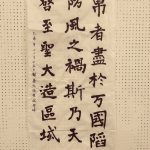 帛者盡於万國蹈
防風之禍斯乃天
啓至聖大造區域